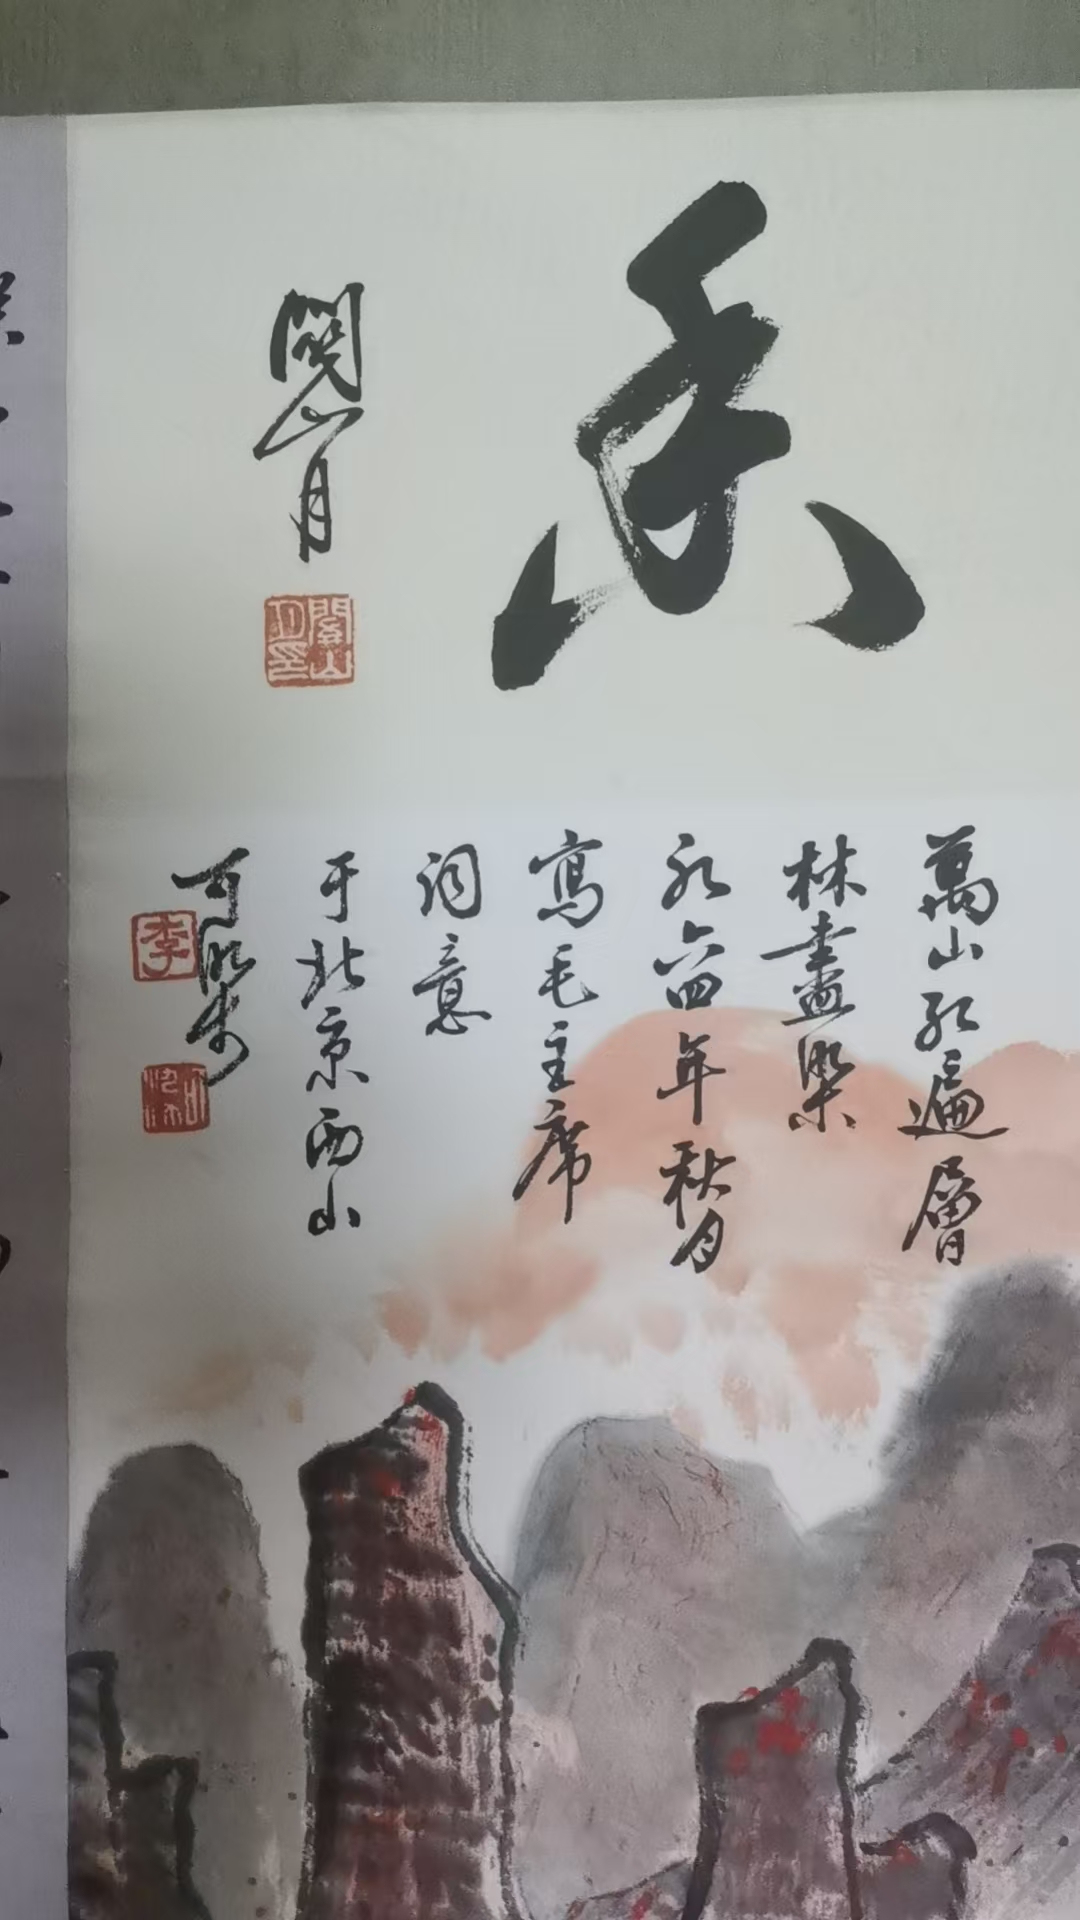 関山月
關山月印
萬山紅遍層
林盡染
六四年秋月
寫毛主席
詞意
于北京西山
可染
李
可染